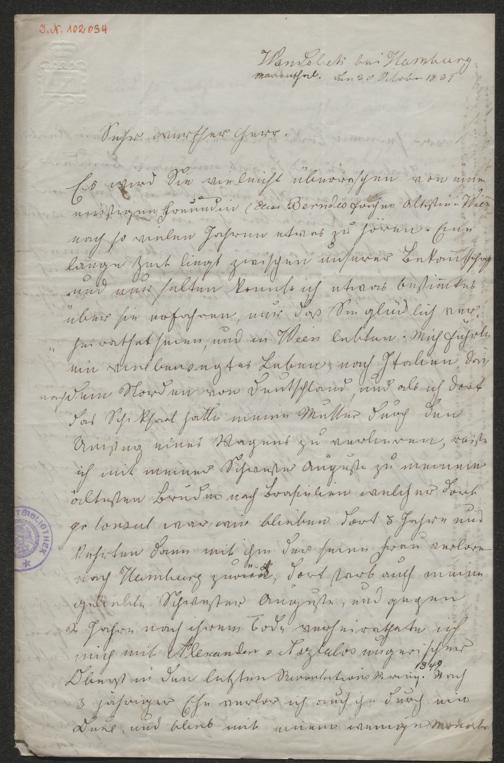 J.N. 102094
Wandsbeck bei Hamburg
Marienthal. den 20 October 18
Sehr werther Herr.
Es wird Sie vielleicht überraschen von einer
einstigen Freundin
nach so vielen Jahren etwas zu hören. Eine
lange Zeit liegt zwischen unserer Bekanntschaft
und nur selten konnte ich etwas bestimtes
über sie erfahren, nur daß Sie glücklich ver,
heirathet seien, und in Wien lebten. Mich führte
ein vielbewegtes Leben, nach Italien dann
nach dem Norden von Deutschland und als ich dort
das Schicksal hatte meine Mutter durch den
Umsturz eines Wagens zu verlieren, reiste
ich mit meiner Schwester Auguste zu meinem
ältesten Bruder nach Brasilien welcher dort
Consul war wir blieben dort 8 Jahre und
kehrten dann mit ihm der seine Frau verloren
nach Hamburg zurück, dort starb auch meine
geliebte Schwester Auguste, und gegen
2 Jahre nach ihrem Tode verheirathete ich
mich mit Alexander v ungarischer
Oberst in den letzten Revolutions Krieg. 1849 Nach
3 jähriger Ehe verlor ich auch ihn durch ein
Duel und blieb mit einem wenige Monate